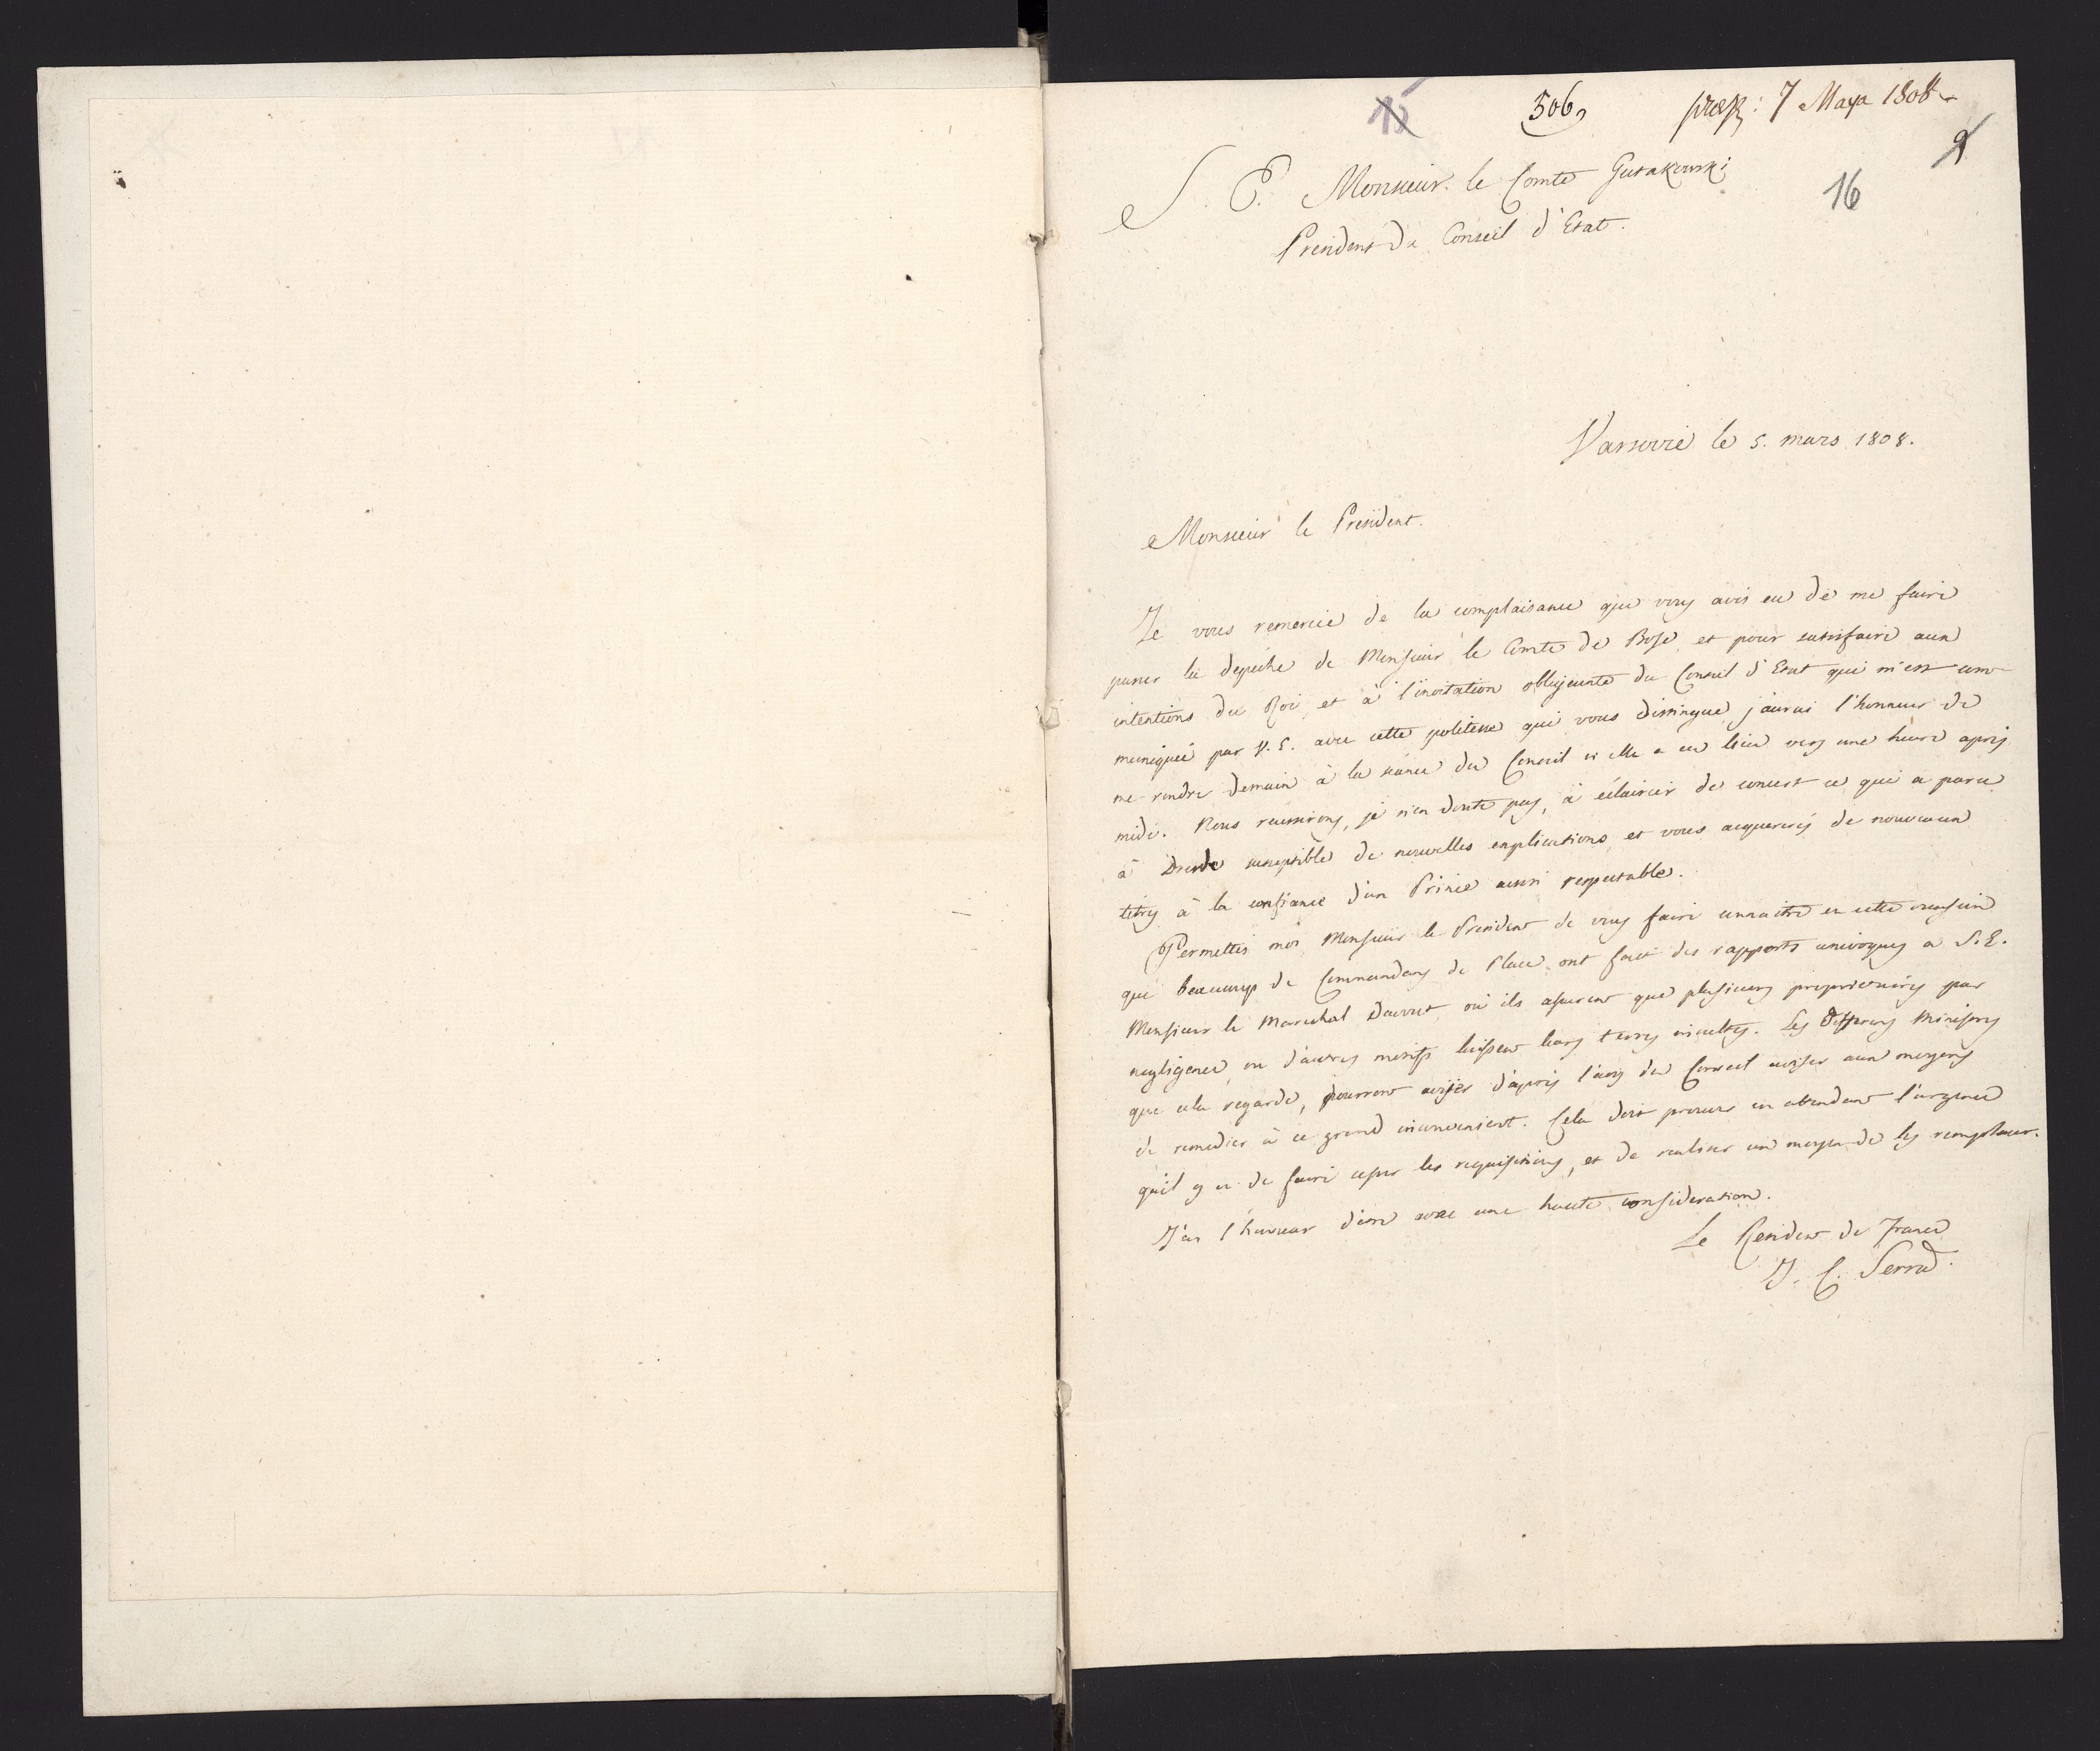 15 506 præs: 7 Marca 1808
2
S. E. Monsieur le Comte Gutakowski
16
President du Conseil d'Etat.
Varsovie le 5. mars 1808.
Monsieur le President.
Je vous remercie de la complaisance que vous avés eu de me faire
passer la depêche de Monsieur le Comte de Bose, et pour satisfaire aux
intentions du Roi, et à l'invitation obligeante du Conseil d'Etat qui m'est com-
muniquée par V. E. avec cette politesse qui vous distingue, j'aurai l'honneur de
me rendre demain à la séance du Conseil si elle a eu lieu vers une heure après
midi. Nous reussirons, je n'en doute pas, à éclaircir de concert ce qui a paru
à Dresde susceptible de nouvelles explications, et vous acquerrés de nouveaux
titres à la confiance d'un Prince aussi respectable.
Permettés moi, Monsieur le President de vous faire connaitre en cette occasion
que beaucoup de Commandans de Place ont fait des rapports univoques a S. E.
Monsieur le Marechal Davout où ils assurent que plusieurs proprietaires par
negligence, ou d'autres motifs laissent leurs terres incultes. Les differens Ministres
que cela regarde, pourront aviser d'après l'avis du Conseil aviser aux moyens
de remedier à ce grand inconvenient. Cela doit prouver en attendant l'urgence
qu'il y a de faire cesser les requisitions, et de realiser un moyen de les remplacer.
J'ai l'honneur d'etre avec une haute consideration.
Le Resident de France
J. C. Serra.